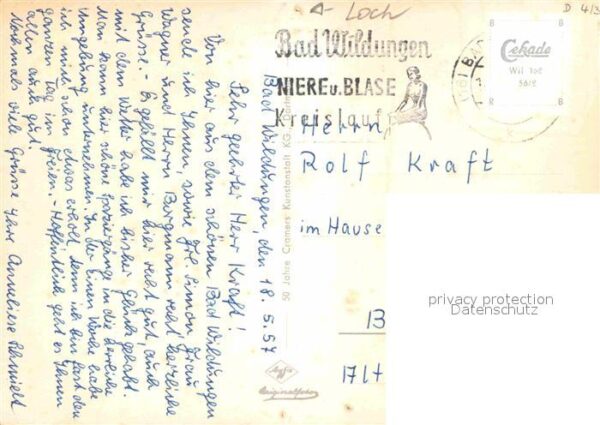 Loch
D 4/3
Bad Wildungen
NIERE u. BLASE
Kreislauf
Cekade
Wil tot
56/2
B
B
B
B
Bad Wildungen, den 18.5.57
Sehr geehrter Herr Kraft!
Von hier aus dem schönen Bad Wildungen
sende ich Ihnen, sowie Frl. Simon, Frau
Wagner und Herrn Borgmann recht herzliche
Grüsse. - Es gefällt mir hier recht gut, auch
mit dem Wetter habe ich bisher Glück gehabt.
Man kann hier schöne Spaziergänge in die herrliche
Umgebung unternehmen. In der einen Woche habe
ich mich schon etwas erholt, denn ich bin fast den
ganzen Tag im Freien. - Hoffentlich geht es Ihnen
allen auch gut.
Nochmals viele Grüsse Ihre Anneliese Schmidt
50 Jahre Cramers Kunstanstalt KG.
Agfa
Originalfoto
Herrn
Rolf Kraft
im Hause
B
Alt
privacy protection
Datenschutz